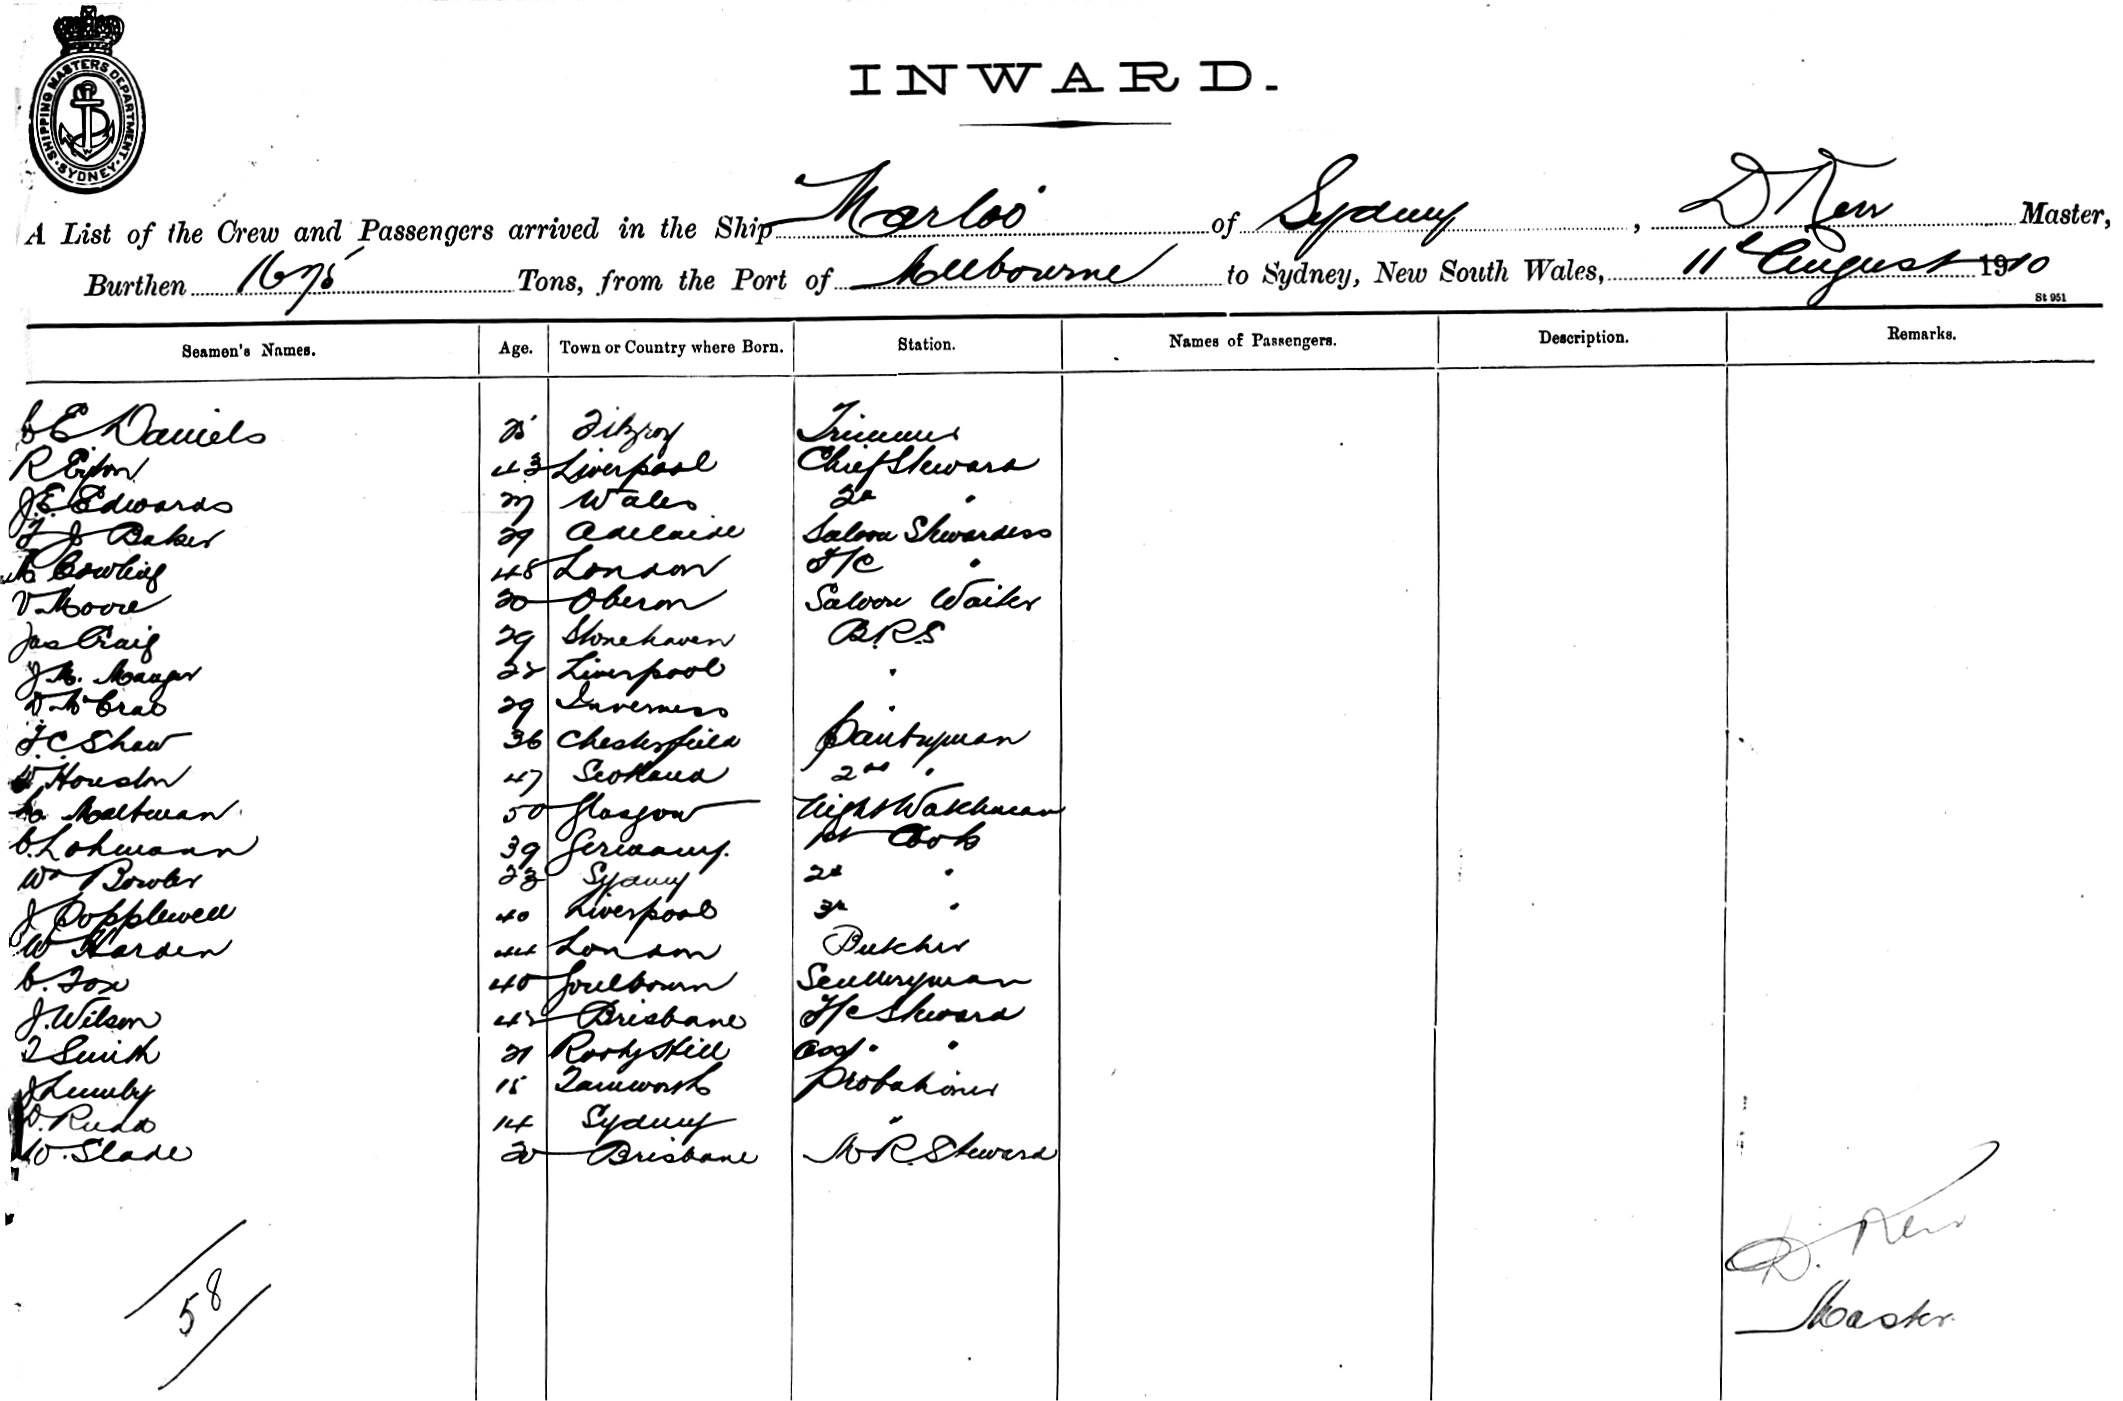 SHIPPING MASTERS DEPARTMENT · SYDNEY ·
INWARD.
A List of the Crew and Passengers arrived in the Ship Marloo of Sydney, D Kerr Master,
Burthen 1675 Tons, from the Port of Melbourne to Sydney, New South Wales, 11th August 1910
St 951
Seamen's Names. Age. Town or Country where Born. Station. Names of Passengers. Description. Remarks.
C E Daniels 25 Fitzroy Trimmer
R Eyton 43 Liverpool Chief Steward
J.E. Edwards 27 Wales 2d "
J Baker 29 Adelaide Saloon Stewardess
Cowling 48 London F/C "
V Moore 20 Oberon Saloon Waiter
Jas Craig 29 Stonehaven B.R.S
J.M. Mauger 22 Liverpool "
D McCrae 29 Inverness "
F.C. Shaw 36 Chesterfield Pantryman
W Houston 47 Scotland 2nd "
Maltman 50 Glasgow Night Watchman
C. Lohmann 39 Germany. 1st Cook
Wm Bowler 23 Sydney 2d "
J Popplewell 40 Liverpool 3r "
W Harden 44 London Butcher
C. Fox 40 Goulbourn Sculleryman
J. Wilson 42 Brisbane F/C Steward
T Smith 21 Rooty Hill Asst. "
J Lumby 15 Tamworth Probationer
D. Rudd 14 Sydney "
W. Slade 20 Brisbane M R. Steward
58
D. Kerr
Master